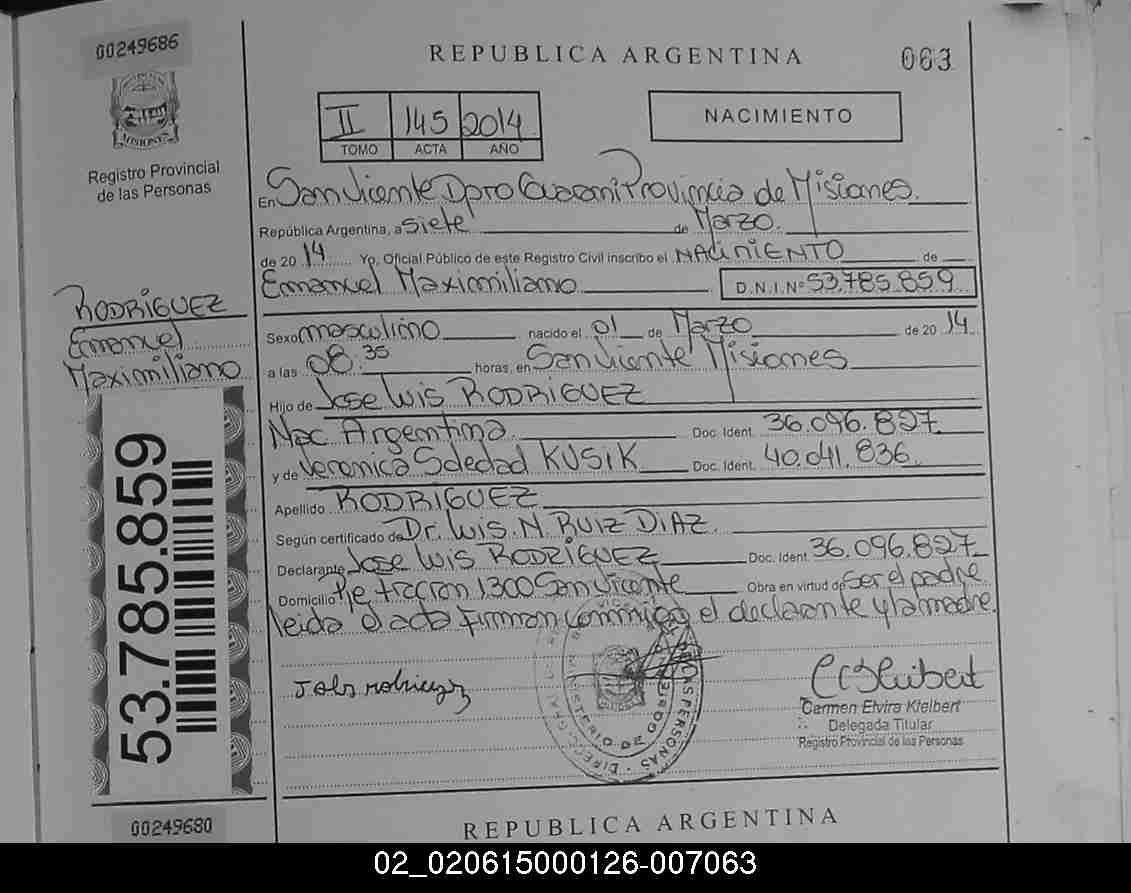 00249686
REPUBLICA ARGENTINA
063
MISIONES
Registro Provincial
de las Personas
II 145 2014
TOMO ACTA AÑO
NACIMIENTO
En San Vicente Dpto Guarani Provincia de Misiones.
República Argentina, a siete de Marzo.
de 20 14 Yo, Oficial Público de este Registro Civil inscribo el NACIMIENTO de
Emanuel Maximiliano D.N.I. Nº 53.785.859
RODRÍGUEZ
Emanuel
Maximiliano
53.785.859
Sexo masculino nacido el 01 de Marzo de 20 14
a las 08:35 horas, en San Vicente Misiones
Hijo de Jose Luis RODRIGUEZ
Nac Argentina. Doc. Ident. 36.096.827
y de Veronica Soledad KUSIK Doc. Ident. 40.041.836
Apellido RODRÍGUEZ
Según certificado de Dr. Luis. N. RUIZ DIAZ.
Declarante Jose Luis RODRÍGUEZ Doc. Ident. 36.096.827
Domicilio 1300 San Vicente Obra en virtud de ser el padre
leida el acta firman conmigo el declarante y la madre.
MINISTERIO DE GOBIERNO
DE LAS PERSONAS
Carmen Elvira Kielbert
Delegada Titular
Registro Provincial de las Personas
00249680
REPUBLICA ARGENTINA
02_020615000126-007063